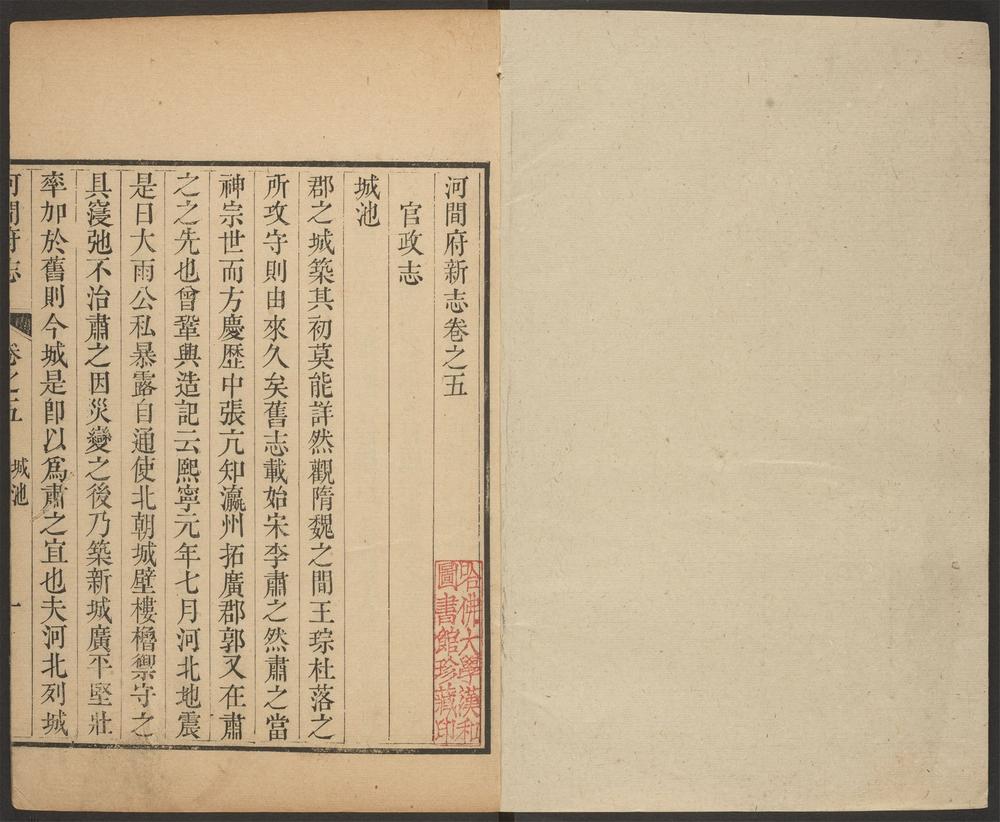 河間府新志卷之五
官政志
城池
郡之城築其初莫能詳然觀隋魏之間王琮杜落之
所攻守則由來久矣舊志載始宋李肅之然肅之當
神宗世而方慶歷中張亢知瀛州拓廣郡郭又在肅
之之先也曾鞏興造記云熙寧元年七月河北地震
是日大雨公私暴露自通使北朝城壁樓櫓禦守之
具寖弛不治肅之因災變之後乃築新城廣平堅壯
率加於舊則今城是卽以爲肅之宜也夫河北列城
河間府志 卷之五 城池 一
哈佛大學漢和
圖書館珍藏印